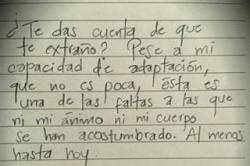 ¿Te das cuenta de que
te extraño? Pese a mi
capacidad de adaptación,
que no es poca, ésta es
una de las faltas a las que
ni mi ánimo ni mi cuerpo
se han acostumbrado. Al menos
hasta hoy